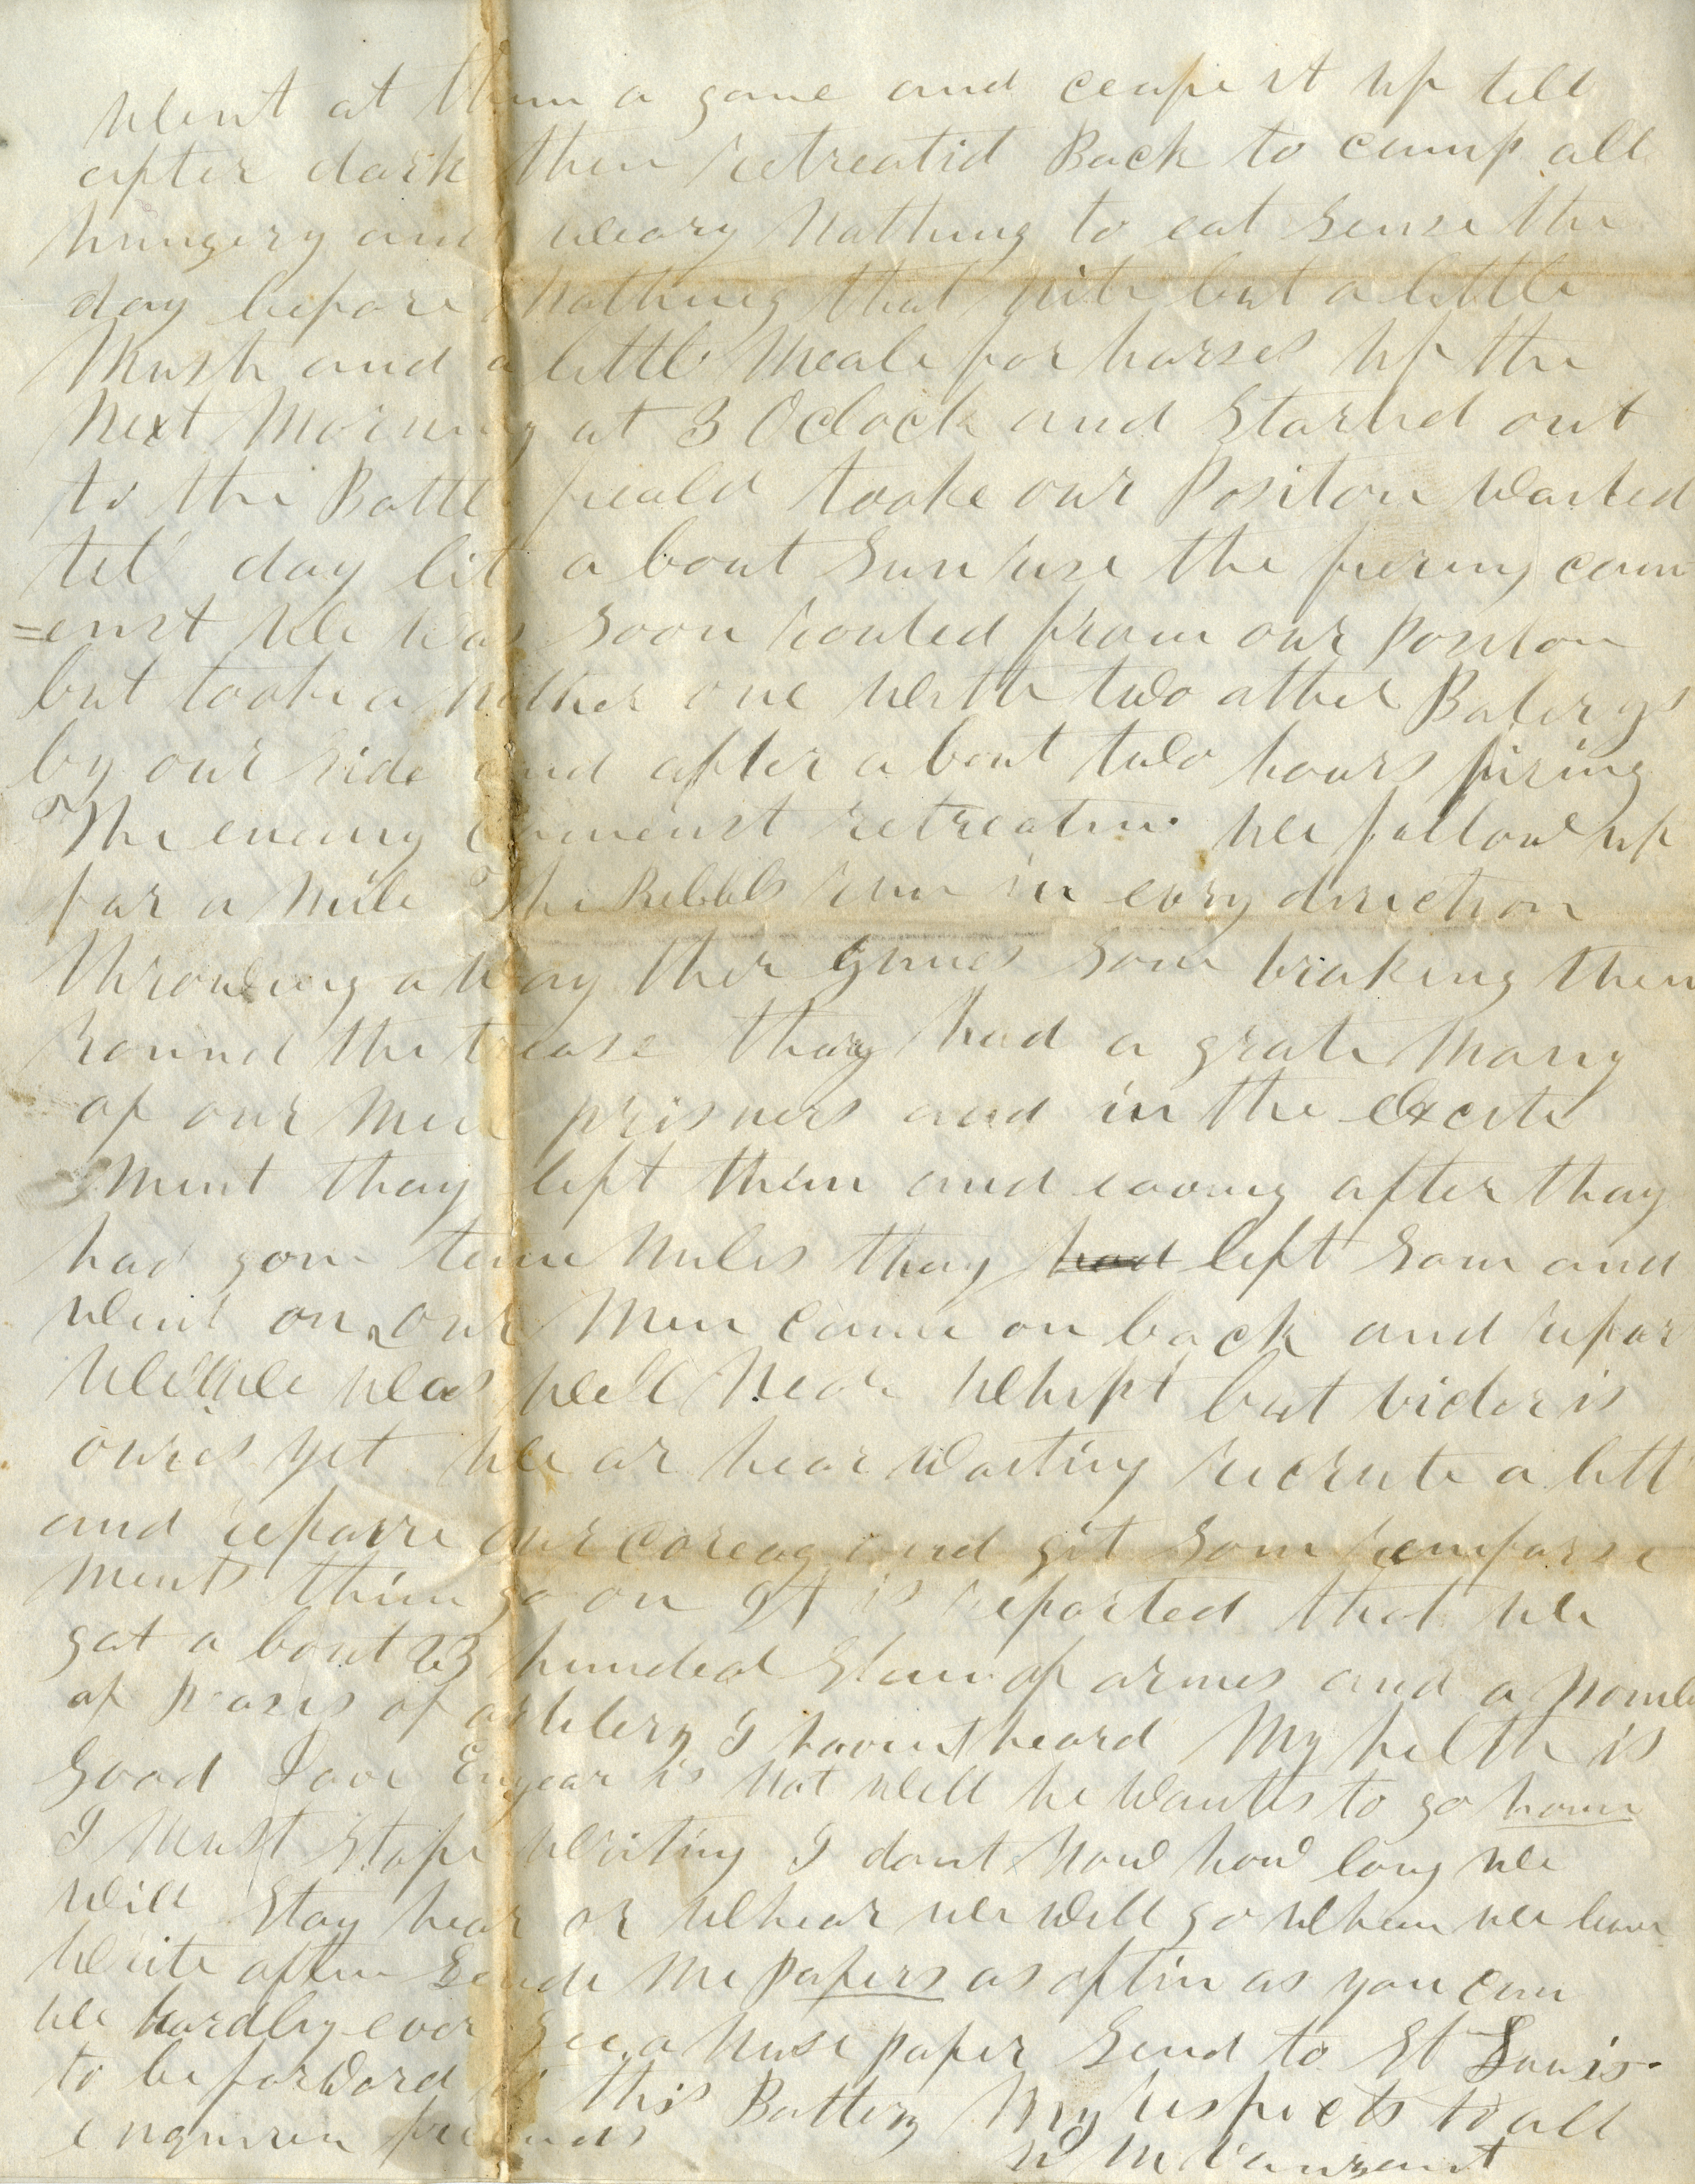 Went at them a gane and ceape it up till
after dark then retreatid Back to camp all
hungery and weary Nathing to eat sense the
day before Nathing that nite but a little
Mush and a little Meale for horses up the
Next Morning at 3 Oclock and Started out
to the Battle feald tooke our Positon Waited
tel day lit a bout Sun rise the fiering com
=enst We was Soon routed from our Positon
but tooke a nother one With two other Baterys
by our side and after a bout two hours firing
The enemy commenst retreatin We follow up
for a Mile The Rebbels run in evry dirrection
throwing a way ther gunes Som braking them
round the trease thay had a grate Many
of our Men prisners and in the excite
ment thay left them and eaving after thay
had gon tenn Miles thay had left Som and
Went on our Men came on back and repor
We was well Near Whipt but victor is
oures yet We ar hear Waiting recrute a litt
and repaire our and git Som reinforse
ments then go on It is reported that We
got a bout 23 hunded Stan of armes and a Nomb
of peases of artilery I havint heard My helth is
Good is Not Well he Wants to go home
I Must Stope Writing I dont Now how long We
Will Stay hear or Whear We Will go When We leave
Write often Sende Me papers as oftin as you can
We hardly ever See a Nuse paper Send to St Louis
to be forword to this Battery My respects to all
enquiren friends
W M